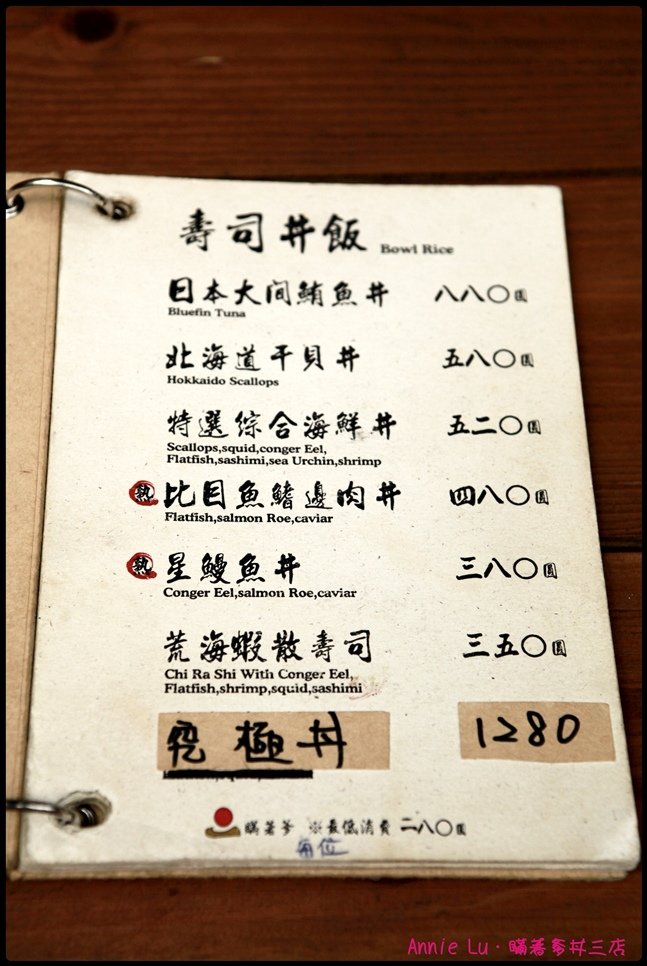 壽司丼飯 Bowl Rice
日本大间鮪魚丼 八八〇圓
Bluefin Tuna
北海道干貝丼 五八〇圓
Hokkaido Scallops
特選綜合海鮮丼 五二〇圓
Scallops,squid,conger Eel,
Flatfish,sashimi,sea Urchin,shrimp
熱 比目魚鰭邊肉丼 四八〇圓
Flatfish,salmon Roe,caviar
熱 星鰻魚丼 三八〇圓
Conger Eel,salmon Roe,caviar
荒海蝦散壽司 三五〇圓
Chi Ra Shi With Conger Eel,
Flatfish,shrimp,squid,sashimi
究極丼 1280
瞞著爹 ※最低消費 二八〇圓
每位
Annie Lu · 瞞著爹丼三店